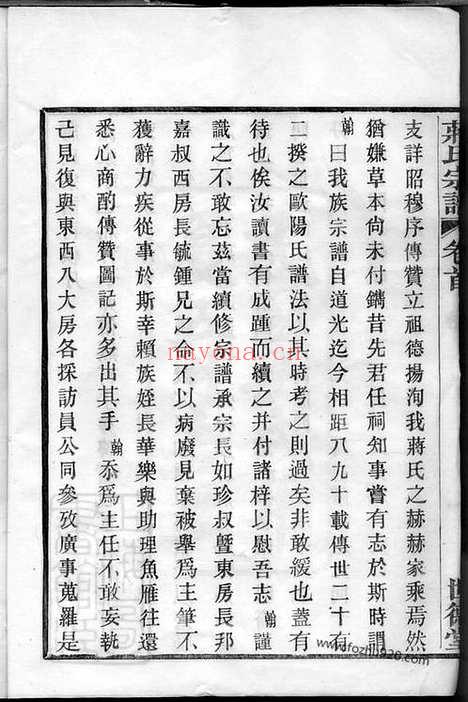 蔣氏宗譜 卷首
世德堂
支詳昭穆序傳贊立祖德揚洵我蔣氏之赫赫家乘焉然
猶嫌草本尚未付鐫昔先君任祠知事嘗有志於斯時謂
翰曰我族宗譜自道光迄今相距八九十載傳世二十有
二揆之歐陽氏譜法以其時考之則過矣非敢緩也蓋有
待也俟汝讀書有成踵而續之并付諸梓以慰吾志翰謹
識之不敢忘茲當續修宗譜承宗長如珍叔暨東房長邦
嘉叔西房長毓鍾兄之命不以病廢見棄被舉爲主筆不
獲辭力疾從事於斯幸賴族姪長華樂與助理魚雁往還
悉心商酌傳贊圖記亦多出其手翰忝爲主任不敢妄執
己見復與東西八大房各採訪員公同參攷廣事蒐羅是
myona.cn
www.fozhi1926.com